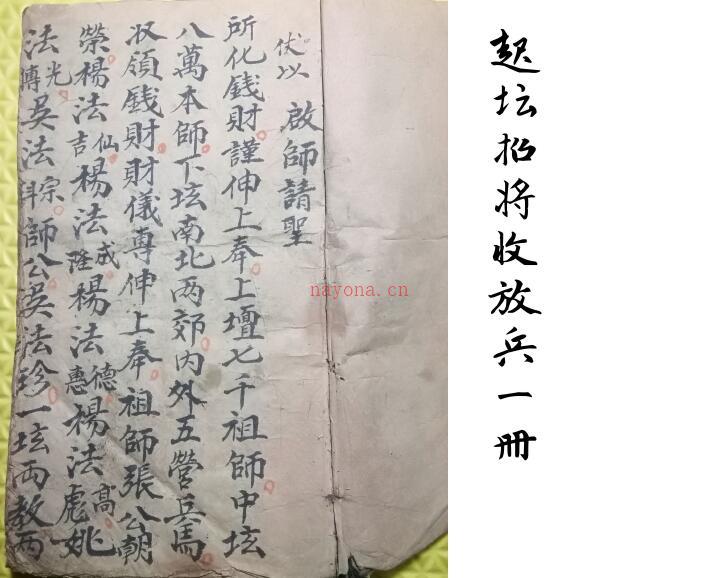 起坛招将收放兵一册
伏以 啟師請聖
所化錢財謹伸上奉上壇七千祖師中坛
八萬本師下坛南北两郊内外五營兵馬
收領錢財財儀專伸上奉祖師張公朝
榮楊法吉仙楊法隆成楊法惠德楊法彪高姚
法傳光吳法宗師公吳法珍一坛両教両
nayona.cn